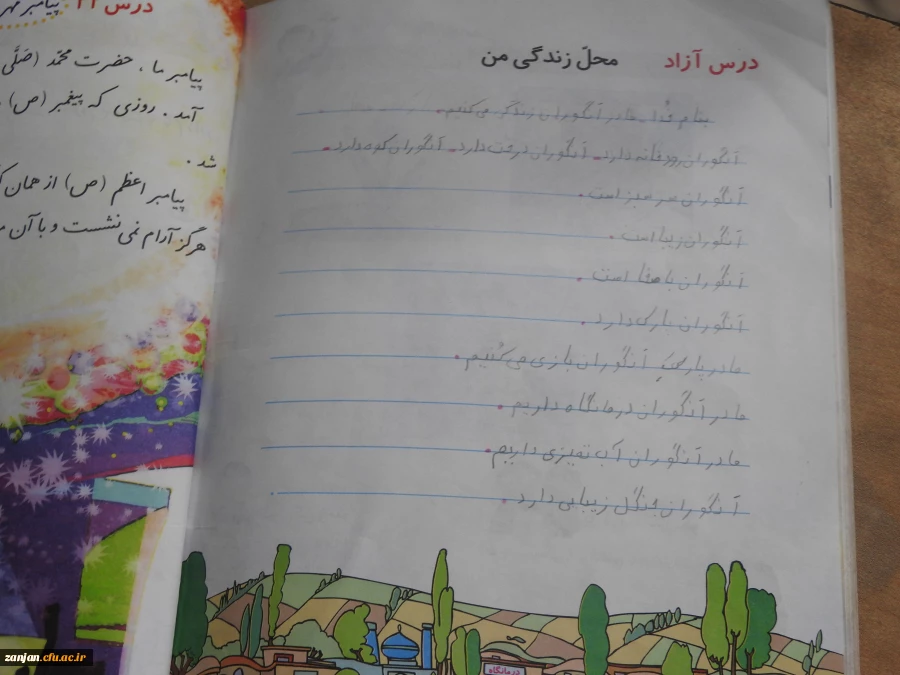 درس آزاد    محلّ زندگی من
بنام خدا ـ ما در آنگوران زندگی می‌کنیم.
آنگوران رودخانه دارد. آنگوران درخت دارد. آنگوران کوه دارد.
آنگوران سر سبز است.
آنگوران زیبا است.
آنگوران با صفا است.
آنگوران پارک دارد.
ما در پارک آنگوران بازی می‌کنیم.
ما در آنگوران درمانگاه داریم.
ما در آنگوران آب تمیزی داریم.
آنگوران جنگل زیبایی دارد.
درمانگاه
درس ۲۱ پیامبر مهر
پیامبر ما، حضرت محمّد (صَلَّی
آمد. روزی که پیغمبر (ص)
شد.
پیامبر اعظم (ص) از همان
هرگز آرام نمی‌نشست و با آن
zanjan.cfu.ac.ir